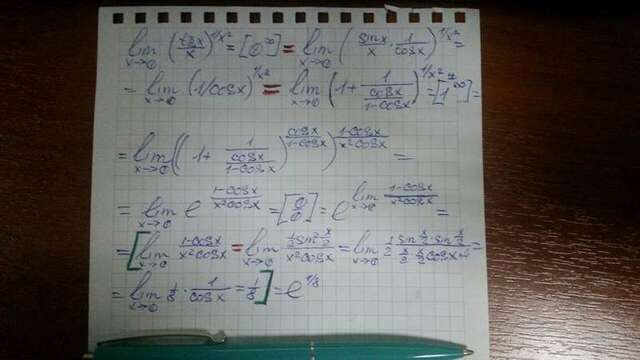 lim x→0 (tgx/x)^1/x² = [0^∞] = lim x→0 (sinx/x · 1/cosx)^1/x² =
= lim x→0 (·1/cosx)^1/x² = lim x→0 (1 + 1/(cosx/(1-cosx)))^1/x² = [1^∞] =
= lim x→0 ((1 + 1/(cosx/(1-cosx)))^(cosx/(1-cosx)))^((1-cosx)/(x²cosx)) =
= lim x→0 e^((1-cosx)/(x²cosx)) = [0/0] = e^(lim x→0 (1-cosx)/(x²cosx)) =
= [lim x→0 (1-cosx)/(x²cosx) = lim x→0 (½sin² x/2)/(x²cosx) = lim x→0 (½ sin x/2 · sin x/2)/(x/2 · x/2 cosx·4) =
= lim x→0 1/8 · 1/cosx = 1/8] = e^1/8